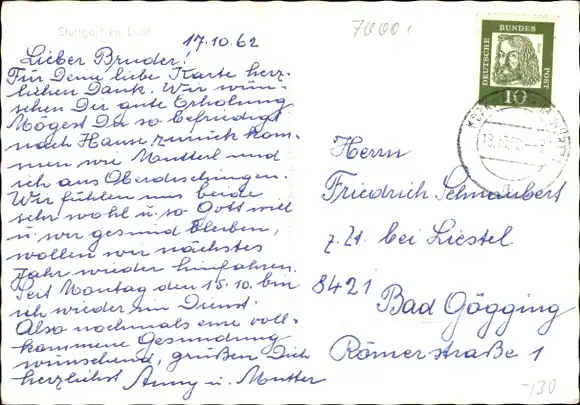 Stuttgart im Licht
7000
17.10.62
Lieber Bruder!
Für Deine liebe Karte herz-
lichen Dank. Wir wün-
schen Dir gute Erholung
Mögest Du so befriedigt
nach Hause zurück kom-
men wie Mutterl und
ich aus Oberdischingen.
Wir fühlen uns beide
sehr wohl u. so Gott will
u. wir gesund bleiben,
wollen wir nächstes
Jahr wieder hinfahren.
Seit Montag den 15.10. bin
ich wieder im Dienst.
Also nochmals eine voll-
kommene Gesundung
wünschend, grüßen Dich
herzlichst Anny u. Mutter
DEUTSCHE BUNDES POST
10
Herrn
Friedrich Schnaubert
z. Zt. bei Liestel
8421 Bad Gögging
Römerstraße 1
-130